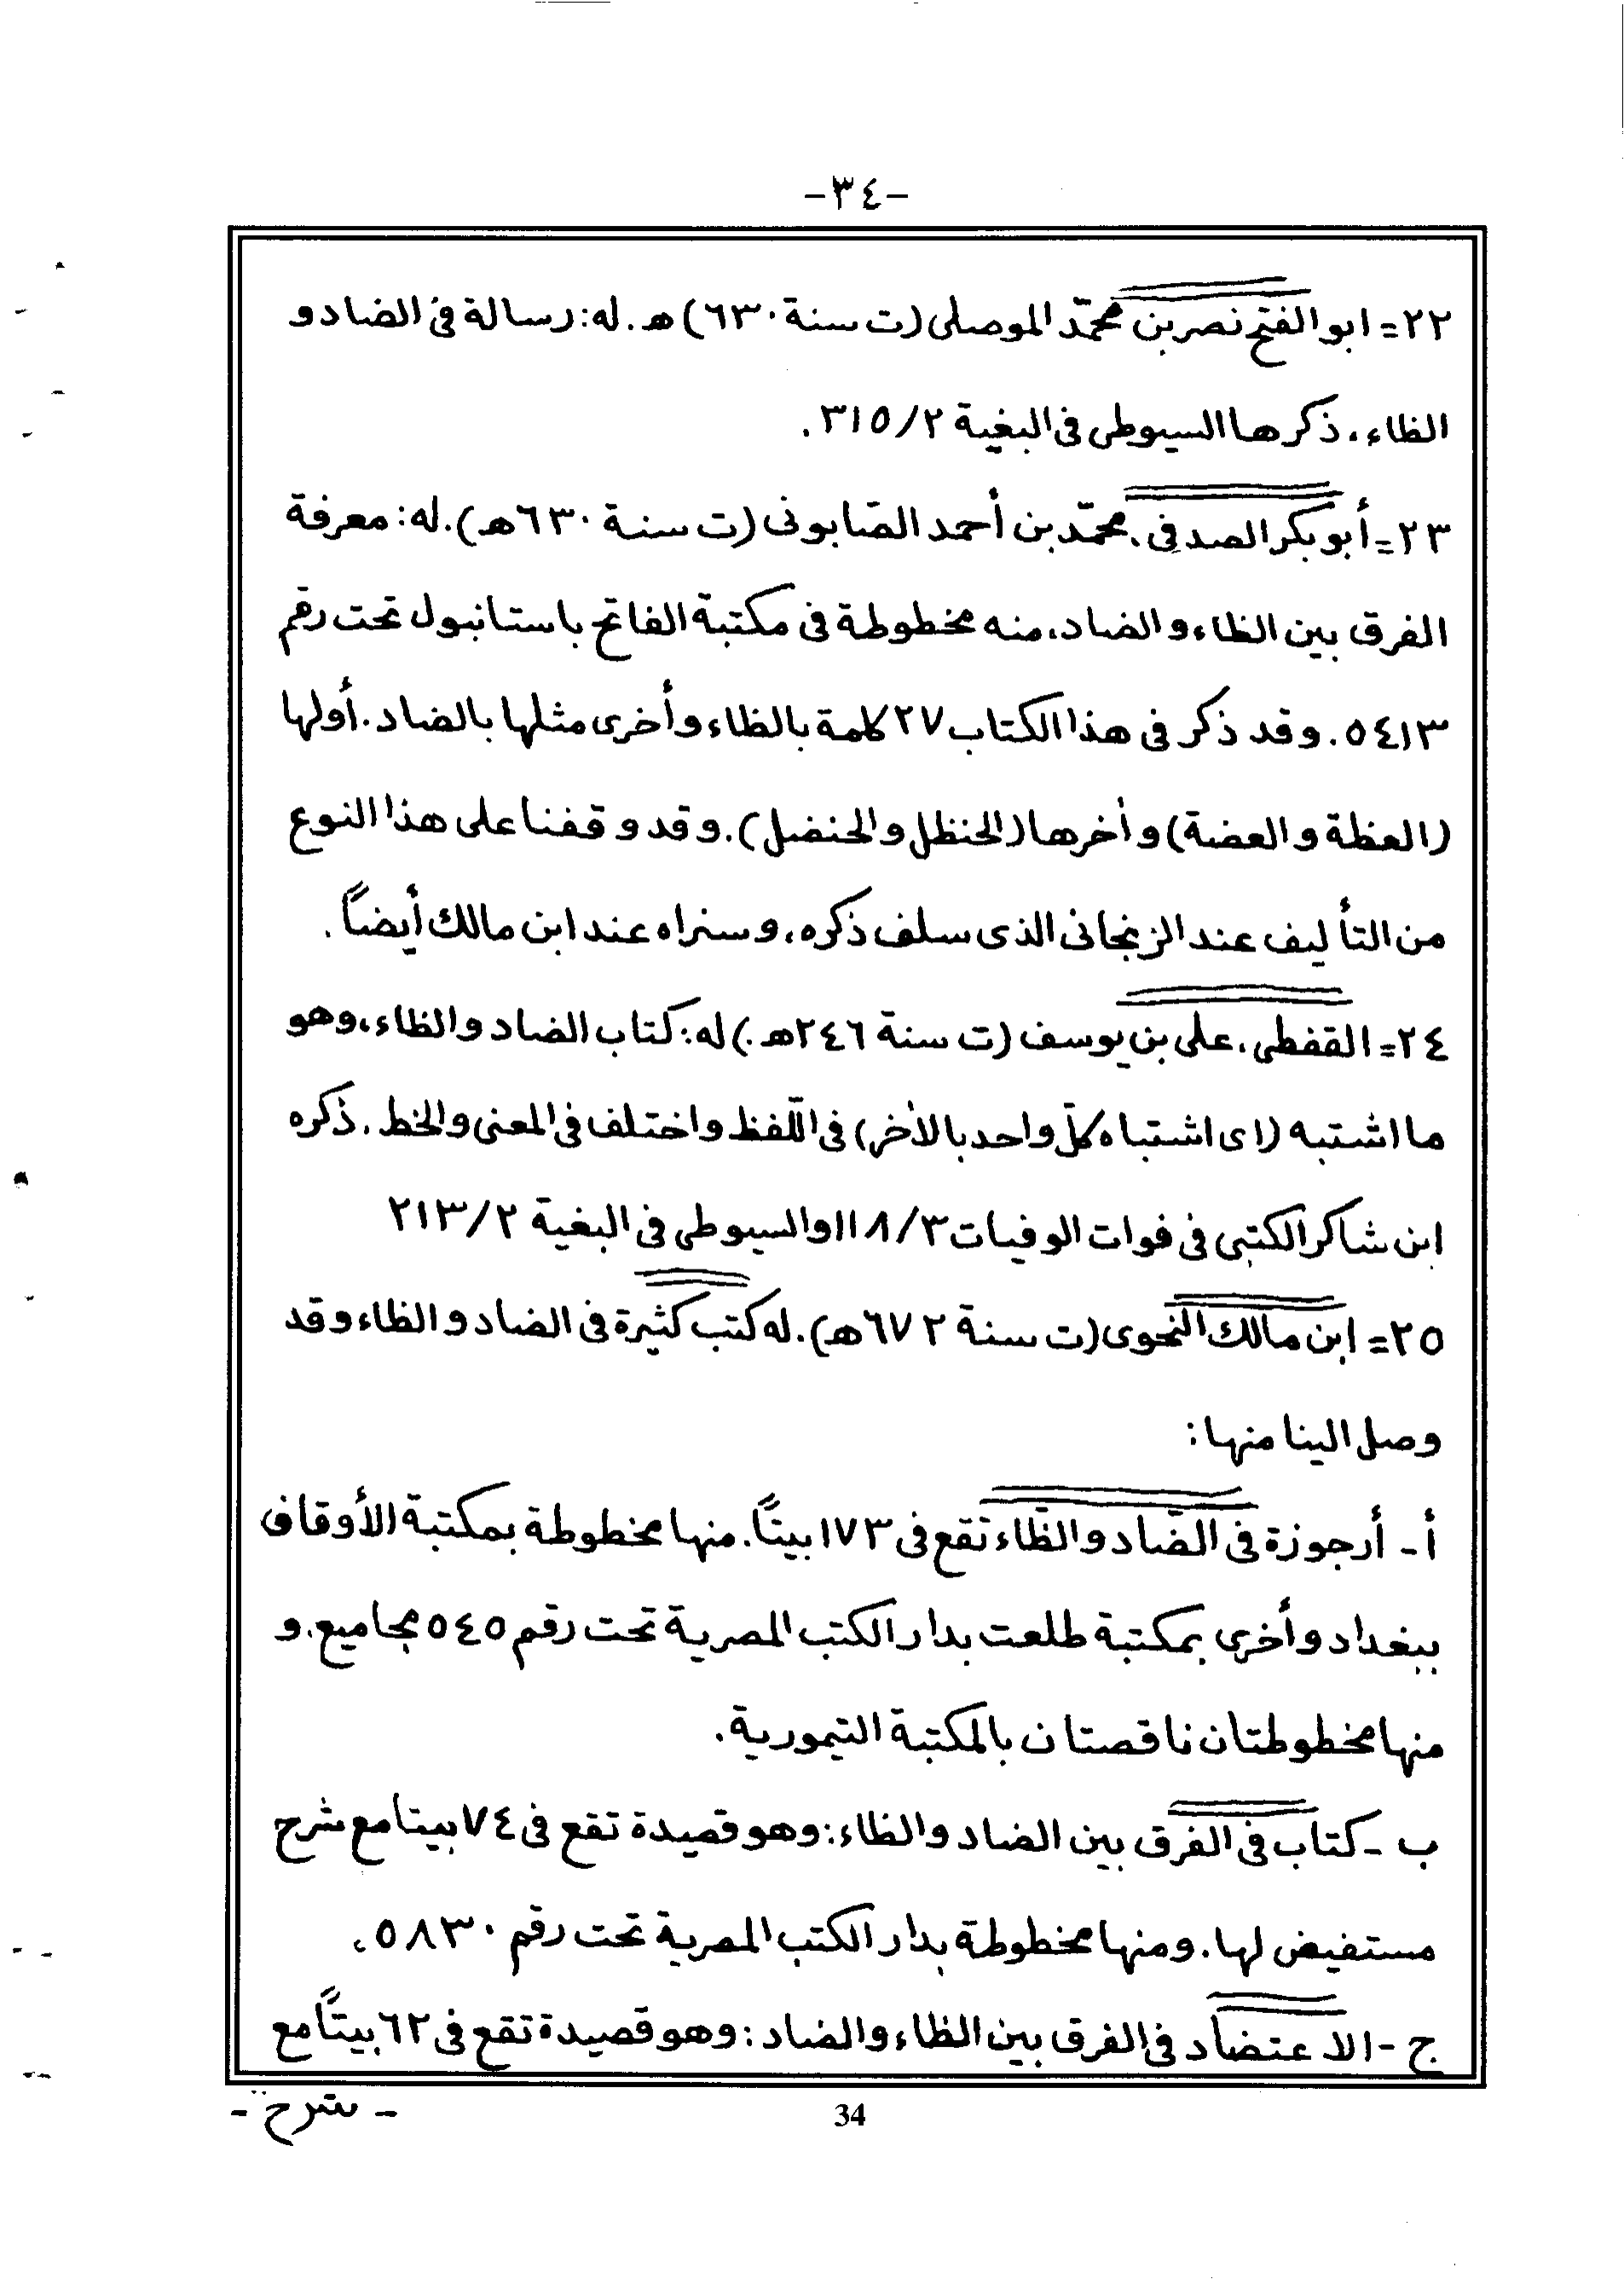 -٣٤-
٢٢= ابو الفتح نصر بن محمّد الموصلى (ت سنة ٦٣٠) ﻫ. له: رسالة فى الضاد و
الظاء، ذكرها السيوطى فى البغية ٣١٥/٢.
٢٣= أبو بكر الصدفى، محمّد بن أحمد الصّابونى (ت سنة ٦٣٠ﻫ). له: معرفة
الفرق بين الظاء والضاد، منه مخطوطة فى مكتبة الفاتح باستانبول تحت رقم
٥٤١٣. وقد ذكر فى هذا الكتاب ٢٧ كلمة بالظاء وأخرى مثلها بالضاد. أولها
(العظة والعضة) وأخرها (الحنظل والحنضل). وقد وقفنا على هذا النوع
من التأليف عند الزنجانى الذى سلف ذكره، وسنراه عند ابن مالك أيضاً.
٢٤= القفطى، على بن يوسف (ت سنة ٢٤٦ﻫ.) له: كتاب الضاد والظاء، وهو
ما اشتبه (اى اشتباه كلّ واحد بالأخر) فى اللّفظ واختلف فى المعنى والخط. ذكره
ابن شاكر الكتبى فى فوات الوفيات ١١٨/٣ والسيوطى فى البغية ٢١٣/٢
٢٥= ابن مالك النحوى (ت سنة ٦٧٢ﻫ). له كتب كثيرة فى الضاد والظاء وقد
وصل الينا منها:
أ- أرجوزة فى الضّاد والظّاء تقع فى ١٧٣ بيتاً. منها مخطوطة بمكتبة الأوقاف
ببغداد وأخرى بمكتبة طلعت بدار الكتب المصرية تحت رقم ٥٤٥ مجاميع. و
منها مخطوطتان ناقصتان بالمكتبة التيمورية.
ب- كتاب فى الفرق بين الضاد والظاء: وهو قصيدة تقع فى ٧٤ بيتا مع شرح
مستفيض لها. ومنها مخطوطة بدار الكتب المصرية تحت رقم ٥٨٣٠،
ج- الاعتضاد فى الفرق بين الظاء والضاد: وهو قصيدة تقع فى ٦٢ بيتاً مع
- شرح -
34